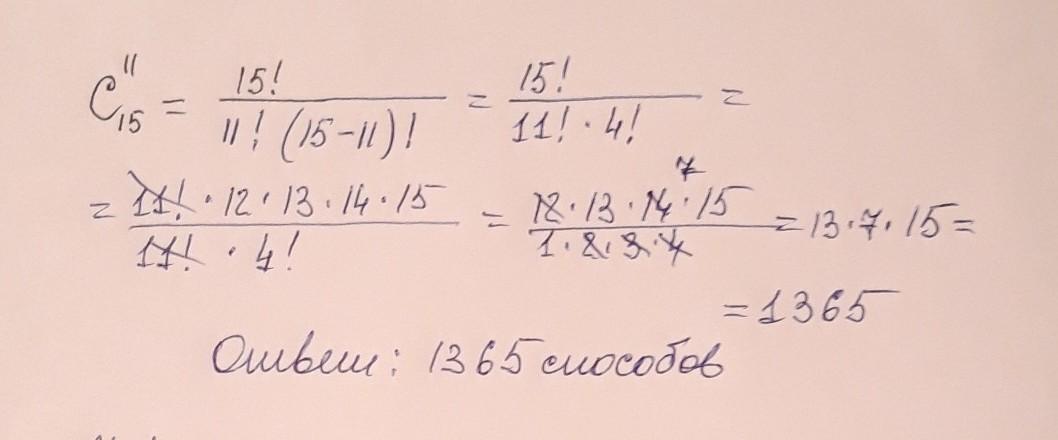 C₁₅¹¹ = 15! / 11! (15-11)! = 15! / 11! · 4! =
= 11! · 12 · 13 · 14 · 15 / 11! · 4! = 12 · 13 · 14 · 15 / 1 · 2 · 3 · 4 = 13 · 7 · 15 =
7
= 1365
Ответ: 1365 способов